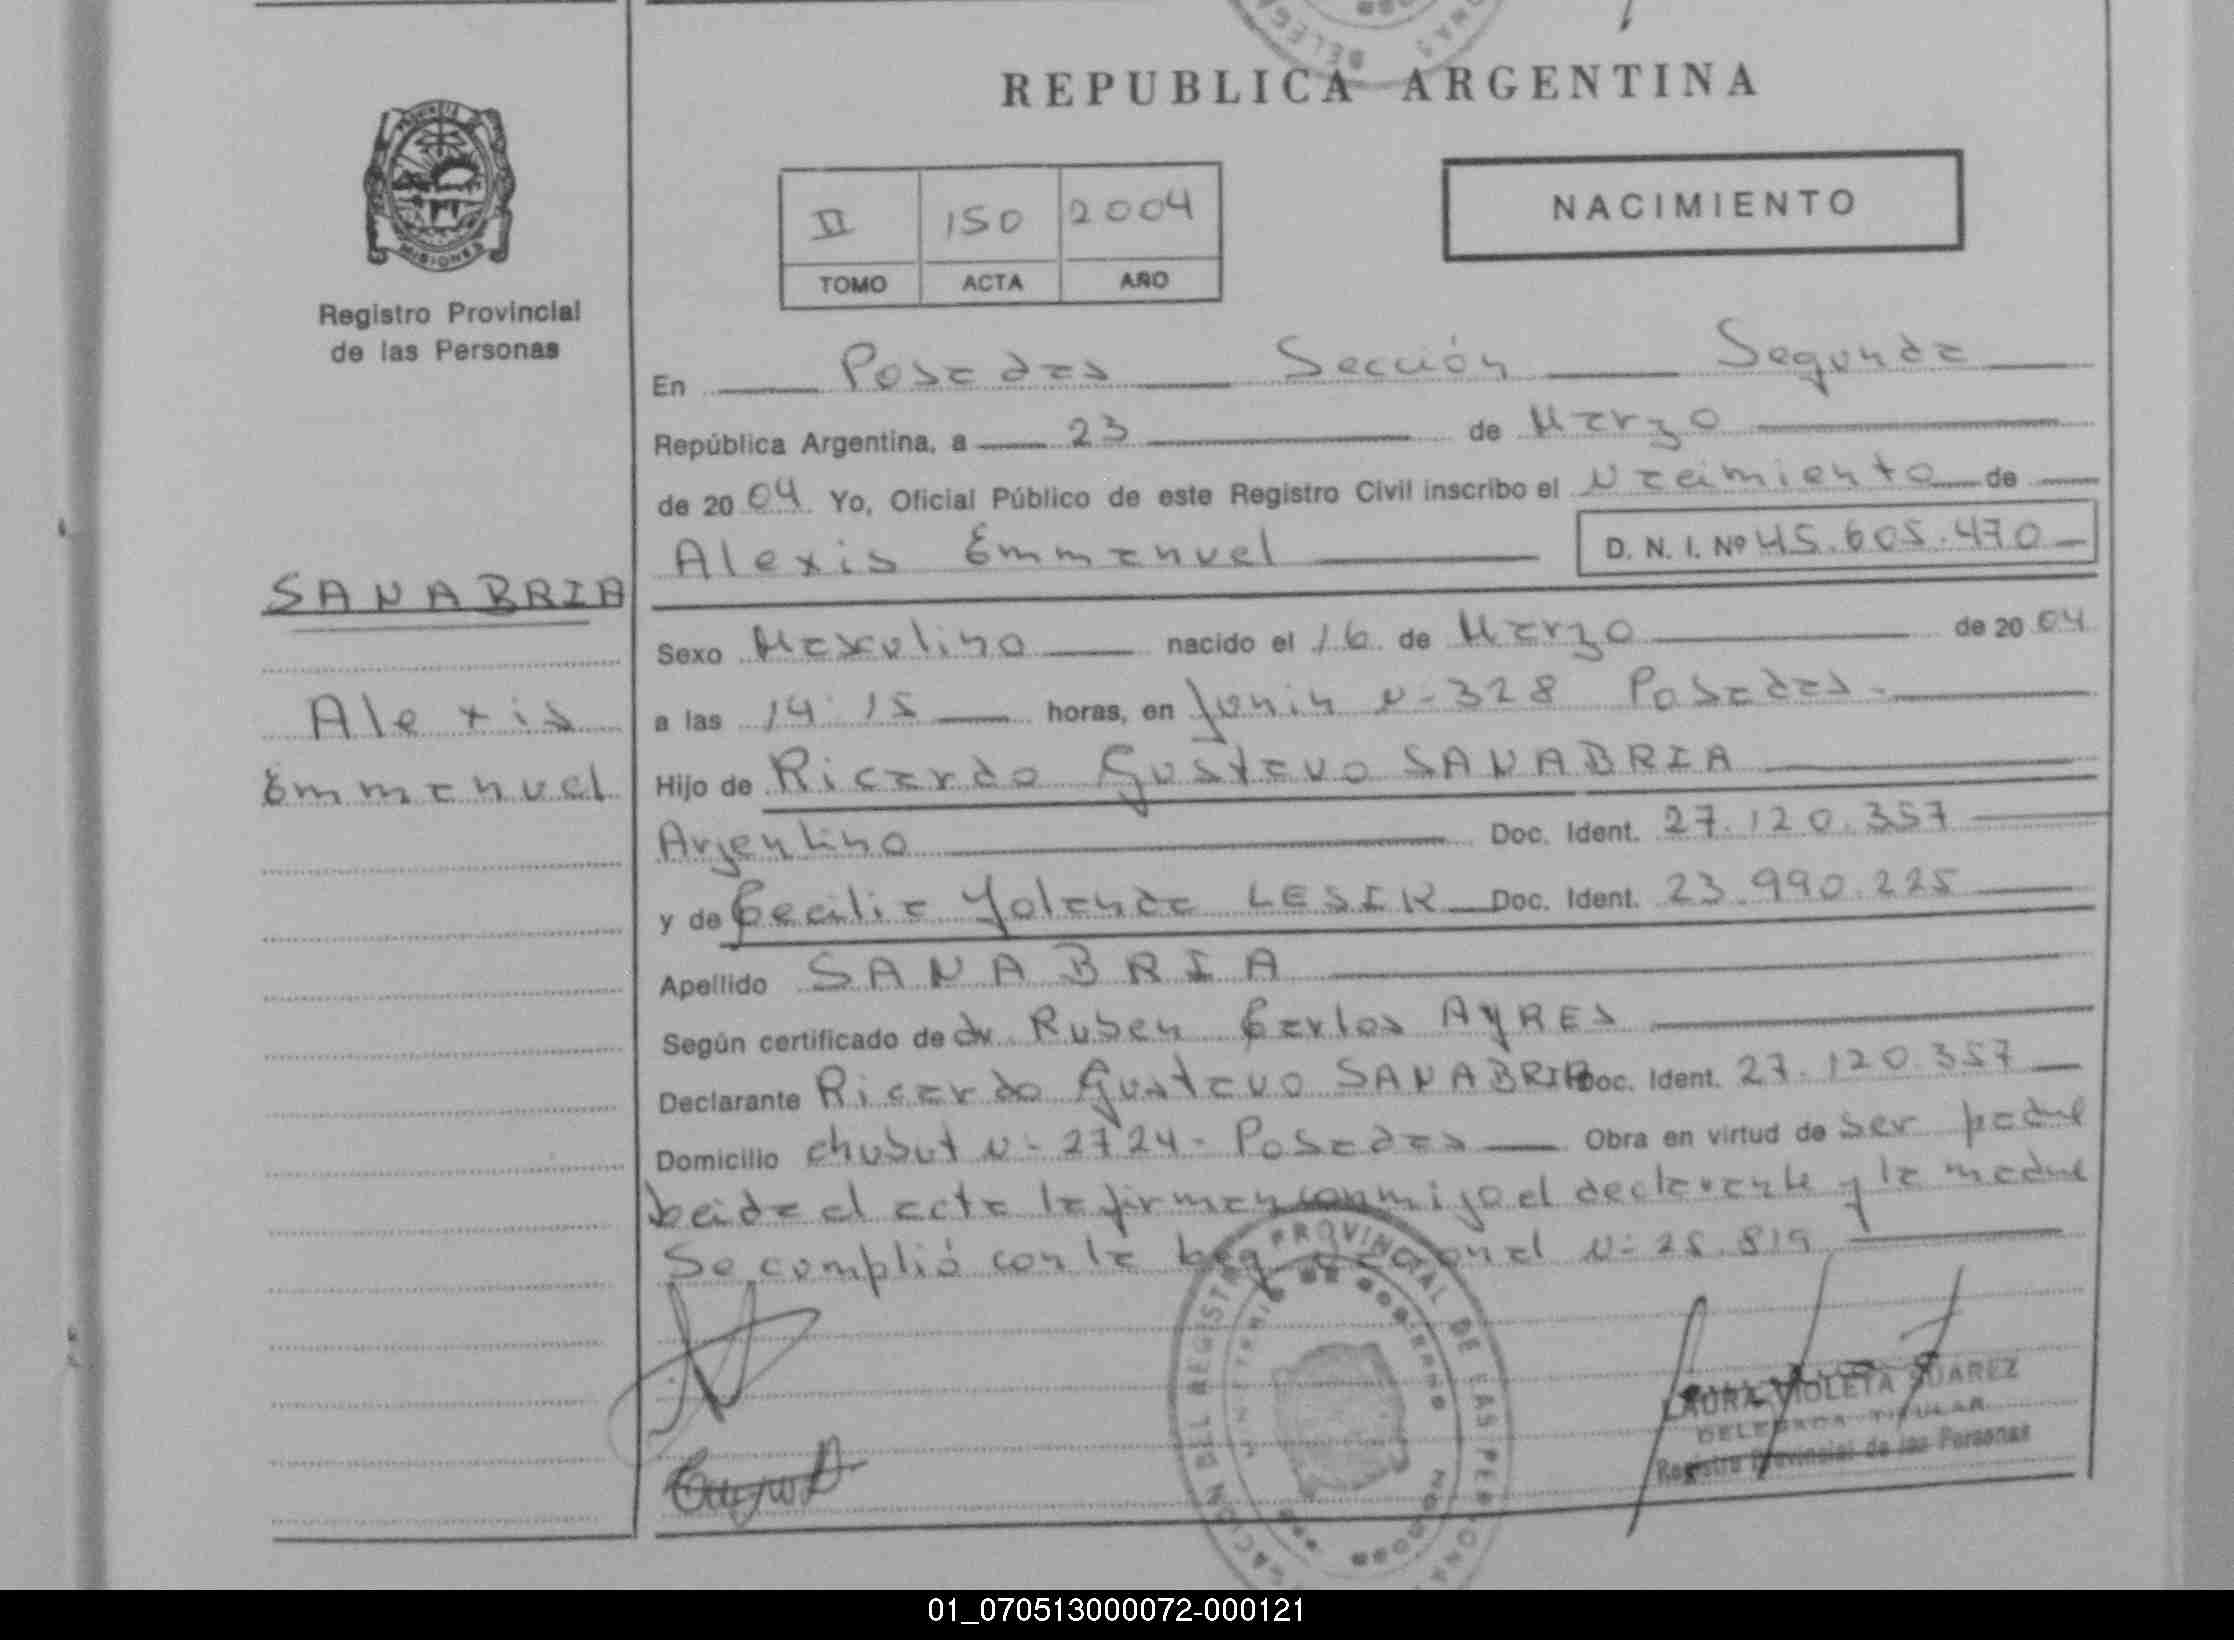 REPUBLICA ARGENTINA
PROVINCIA
MISIONES
Registro Provincial
de las Personas
II 150 2004
TOMO ACTA AÑO
NACIMIENTO
En Posadas Sección Segunda
República Argentina, a 23 de Marzo
de 20 04 Yo, Oficial Público de este Registro Civil inscribo el Nacimiento de
Alexis Emmanuel D. N. I. Nº 45.605.470
SANABRIA
Alexis
Emmanuel
Sexo Masculino nacido el 16 de Marzo de 20 04
a las 14 15 horas, en Junin N- 328 Posadas-
Hijo de Ricardo Gustavo SANABRIA
Argentino Doc. Ident. 27.120.357
y de Cecilia Yolanda LESIK Doc. Ident. 23.990.225
Apellido SANABRIA
Según certificado de dr Ruben Carlos AYRES
Declarante Ricardo Gustavo SANABRIA Doc. Ident. 27.120.357
Domicilio chubut N- 2724- Posadas Obra en virtud de ser padre
Leida el acta la firman conmigo el declarante y la madre
Se cumplió con la Ley nacional N- 25.819
REGISTRO PROVINCIAL DE LAS PERSONAS
LAURA VIOLETA SUAREZ
DELEGADA TITULAR
Registro Provincial de las Personas
01_070513000072-000121